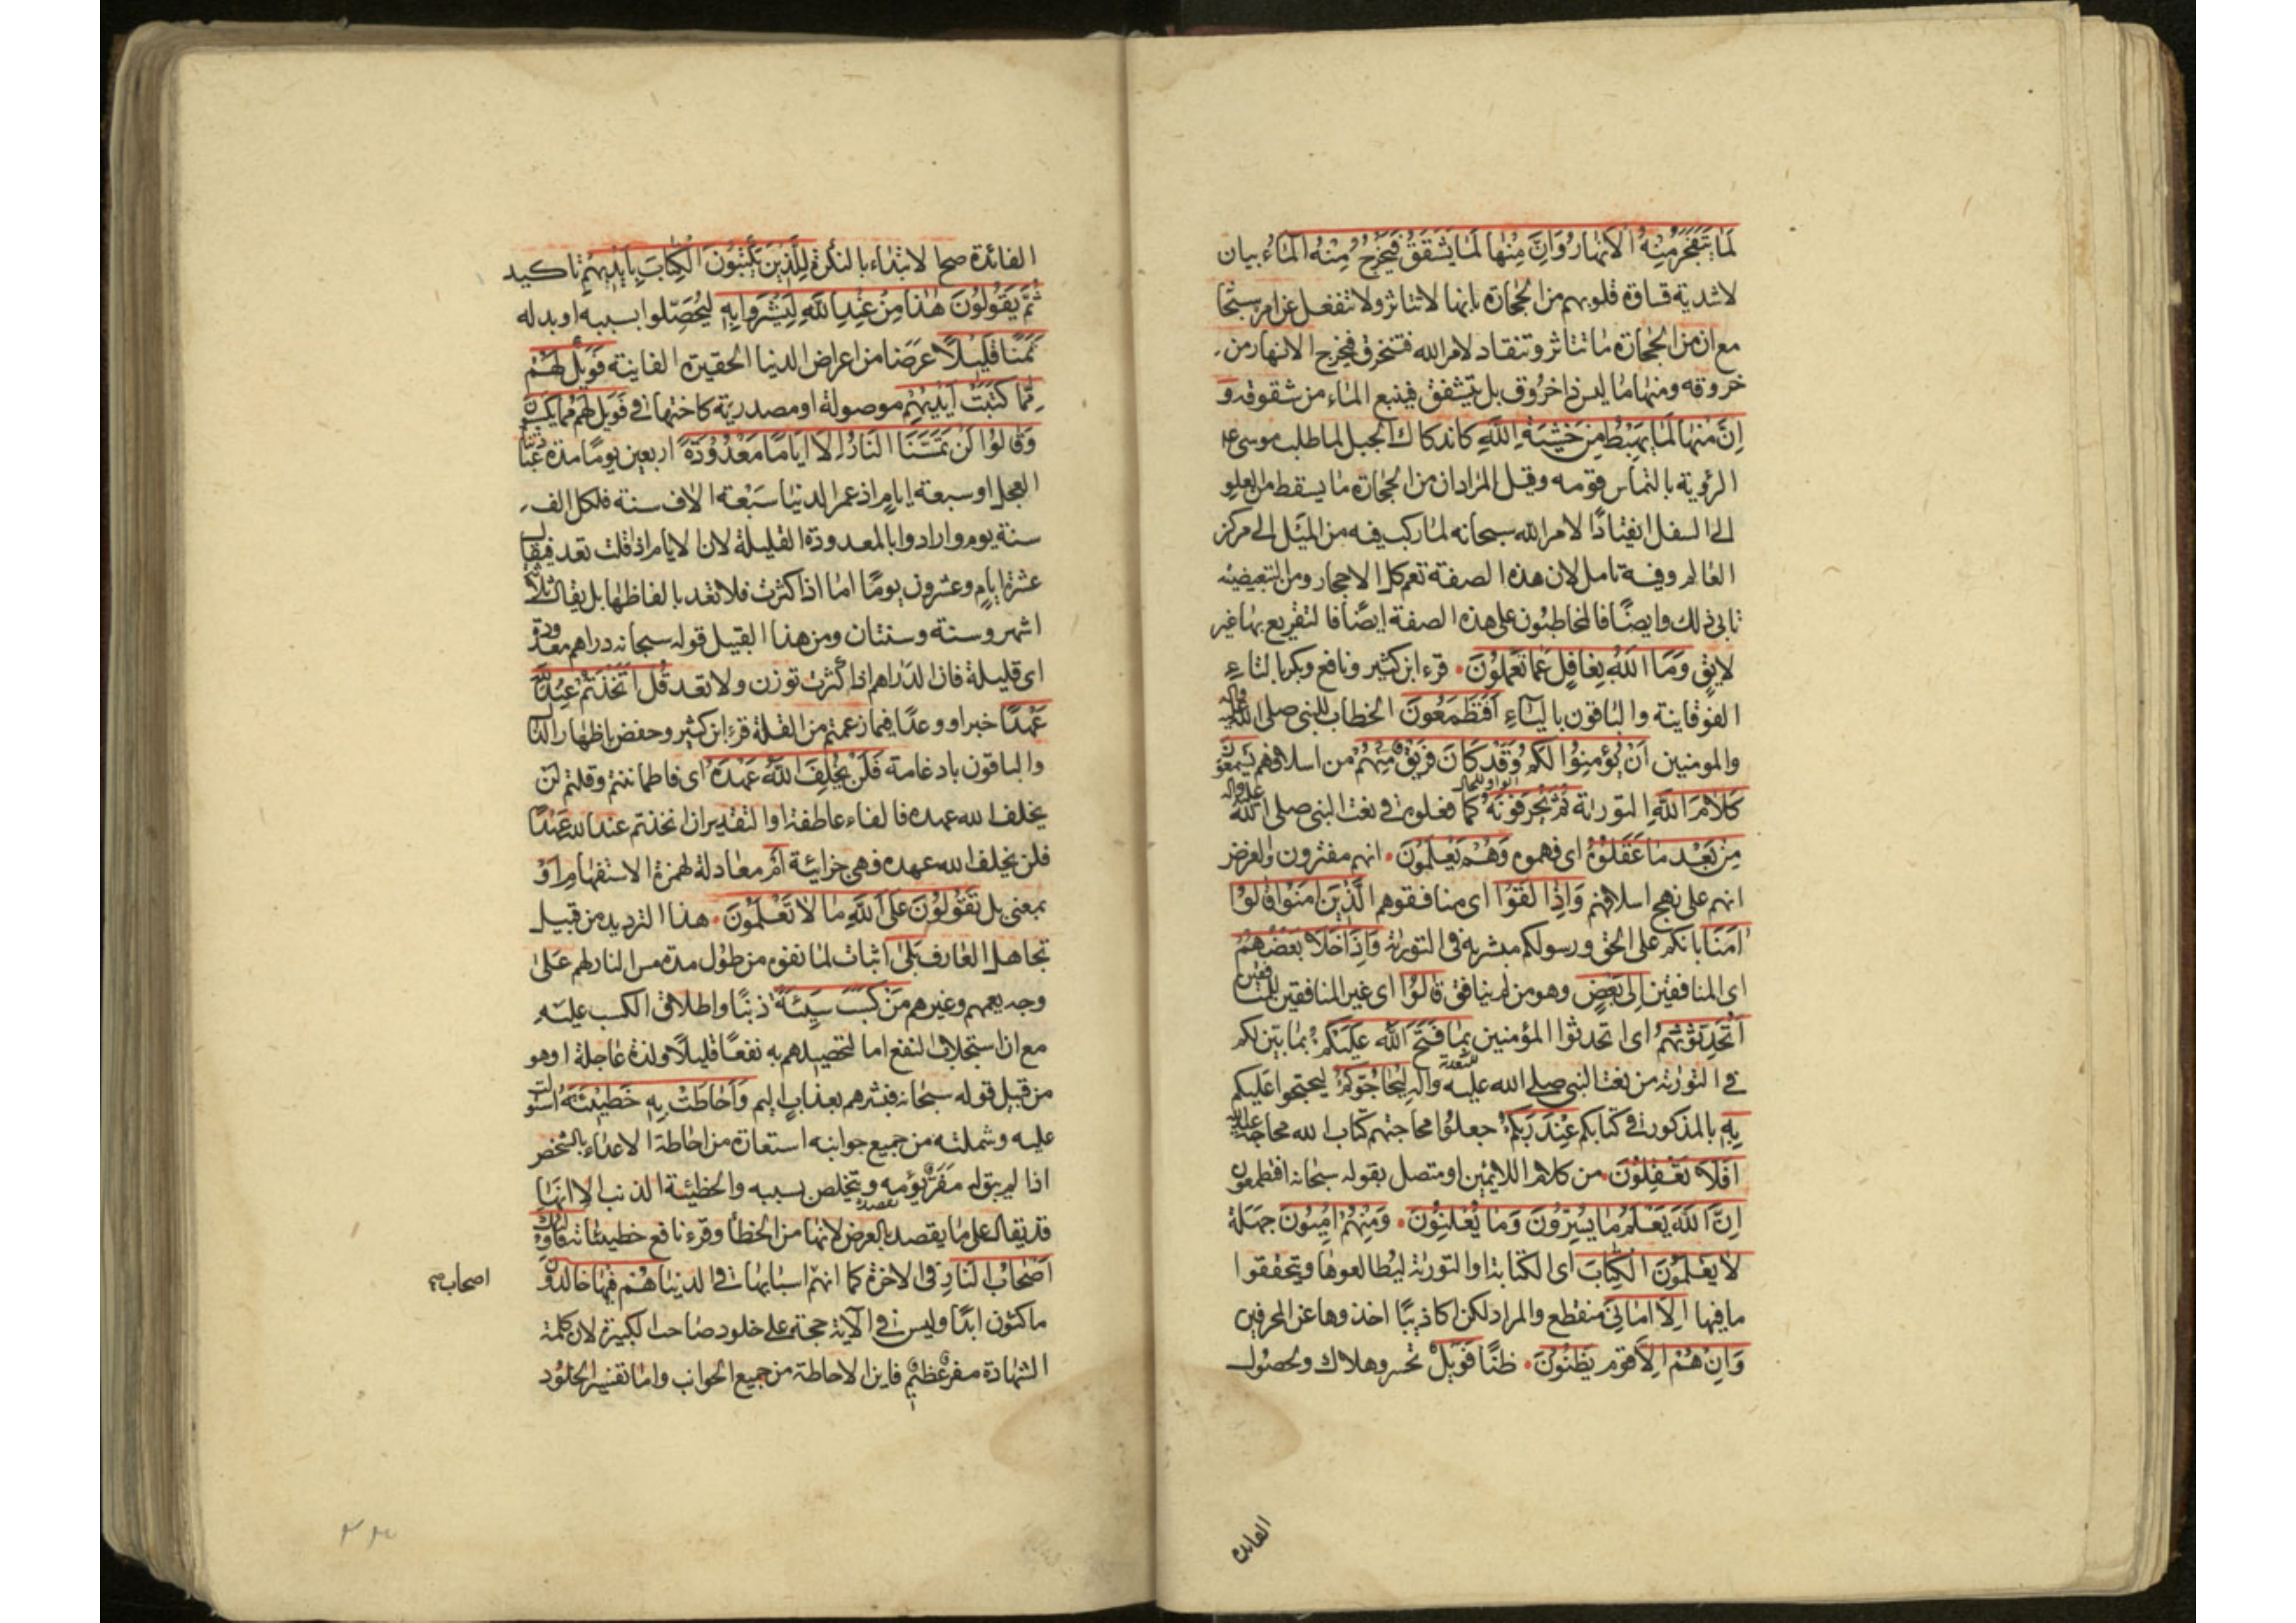 لَمَا يَتَفَجَّرُ مِنْهُ الْاَنْهَارُ وَاِنَّ مِنْهَا لَمَا يَشَّقَّقُ فَيَخْرُجُ مِنْهُ الْمَاءُ بيان
لاشدية قساوة قلوبهم من الحجارة بانها لا تتاثر ولا تنفعل عن امر سبحا
مع ان من الحجارة ما تتاثر وتنقاد لامر الله فتنخرق فيخرج الانهار من
خروقه ومنها ما ليس ذا خروق بل يتشقق فينبع الماء من شقوقه وَ
اِنَّ مِنْهَا لَمَا يَهْبِطُ مِنْ خَشْيَةِ اللّٰهِ كاندكاك الجبل لما طلب موسى ع
الرؤية بالتماس قومه وقيل المراد ان من الحجارة ما يسقط من العلو
الى السفل انقيادًا لامر الله سبحانه لما ركب فيه من الميل الى مركز
العالم وفيه تامل لان هذه الصفة تعم كل الاحجار ومن التبعيضية
تابى ذلك وايضًا فالمخاطبون على هذه الصفة ايضًا فالتقريع بها غير
لايق وَمَا اللّٰهُ بِغَافِلٍ عَمَّا تَعْمَلُونَ قرء ابن كثير ونافع وبكر بالتاء
الفوقانية والباقون بالياء اَفَتَطْمَعُونَ الخطاب للنبي صلى الله عليه واله
والمومنين اَنْ يُؤْمِنُوا لَكُمْ وَقَدْ كَانَ فَرِيقٌ مِنْهُمْ من اسلافهم يَسْمَعُونَ
كَلَامَ اللّٰهِ التورية ثُمَّ يُحَرِّفُونَهُ كما فعلوه في نعت النبي صلى الله عليه واله
مِنْ بَعْدِ مَا عَقَلُوهُ اى فهموه وَهُمْ يَعْلَمُونَ انهم مفترون والغرض
انهم على نهج اسلافهم وَاِذَا لَقُوا اى منافقوهم الَّذِينَ اٰمَنُوا قَالُوا
اٰمَنَّا بانكم على الحق ورسولكم مبشر به في التورية وَاِذَا خَلَا بَعْضُهُمْ
اى المنافقين اِلٰى بَعْضٍ وهو من لم ينافق قَالُوا اى غير المنافقين للمنافقين
اَتُحَدِّثُونَهُمْ اى اتحدثوا المؤمنين بِمَا فَتَحَ اللّٰهُ عَلَيْكُمْ بما بيّن لكم
في التورية من نعت النبي صلى الله عليه واله لِيُحَاجُّوكُمْ ليحتجوا عليكم
بِهِ بالمذكور في كتابكم عِنْدَ رَبِّكُمْ جعلوا محاجتهم كتاب الله محاجة
اَفَلَا تَعْقِلُونَ من كلام اللايمين او متصل بقوله سبحانه افتطمعون
اِنَّ اللّٰهَ يَعْلَمُ مَا يُسِرُّونَ وَمَا يُعْلِنُونَ وَمِنْهُمْ اُمِّيُّونَ جهلة
لَا يَعْلَمُونَ الْكِتَابَ اى الكتابة او التورية ليطالعوها ويتحققوا
ما فيها اِلَّا اَمَانِيَّ منقطع والمراد لكن اكاذيبًا اخذوها عن المحرفين
وَاِنْ هُمْ اِلَّا قوم يَظُنُّونَ ظنًّا فَوَيْلٌ تحسر وهلاك ولحصول
الفائده
الفائدة صح الابتداء بالنكرة لِلَّذِينَ يَكْتُبُونَ الْكِتَابَ بِاَيْدِيهِمْ تاكيد
ثُمَّ يَقُولُونَ هٰذَا مِنْ عِنْدِ اللّٰهِ لِيَشْتَرُوا بِهِ ليُحصّلوا بسببه او بدله
ثَمَنًا قَلِيلًا عرضا من اعراض الدنيا الحقيرة الفاينة فَوَيْلٌ لَهُمْ
مِمَّا كَتَبَتْ اَيْدِيهِمْ موصولة او مصدرية كاختها في فَوَيْلٌ لَهُمْ مِمَّا يَكْسِبُونَ
وَقَالُوا لَنْ تَمَسَّنَا النَّارُ اِلَّا اَيَّامًا مَعْدُودَةً اربعين يومًا مدة عبادتنا
العجل او سبعة ايام اذ عمر الدنيا سبعة الاف سنة فلكل الف
سنة يوم وارادوا بالمعدودة القليلة لان الايام اذا قلت تعد فيقال
عشرة ايام وعشرون يومًا اما اذا كثرت فلا تعد بالفاظها بل يقال ثلاثة
اشهر وسنة وسنتان ومن هذا القبيل قوله سبحانه دراهم معدودة
اى قليلة فان الدراهم اذا كثرت توزن ولا تعد قُلْ اَتَّخَذْتُمْ عِنْدَ اللّٰهِ
عَهْدًا خبرا و وعدًا فيما زعمتم من القلة قرء ابن كثير وحفص باظهار الذال
والباقون بادغامه فَلَنْ يُخْلِفَ اللّٰهُ عَهْدَهُ اى فاطماننتم وقلتم لن
يخلف الله عهده فالفاء عاطفة او التقدير ان اتخذتم عند الله عهدًا
فلن يخلف الله عهده فهى جزائية اَمْ معادلة لهمزة الاستفهام اَوْ
بمعنى بل تَقُولُونَ عَلَى اللّٰهِ مَا لَا تَعْلَمُونَ هذا الترديد من قبيل
تجاهل العارف بَلٰى اثبات لما نفوه من طول مدة مس النار لهم على
وجه يعمهم وغيرهم مَنْ كَسَبَ سَيِّئَةً ذنبًا واطلاق الكسب عليه
مع انه استجلاب النفع اما لتحصيلهم به نفعًا قليلًا ولذة عاجلة او هو
من قبيل قوله سبحانه فبشرهم بعذاب اليم وَاَحَاطَتْ بِهِ خَطِيئَتُهُ استولت
عليه وشملته من جميع جوانبه استعارة من احاطة الاعداء بالشخص
اذا لم يبق له مفر يؤمه ويتخلص بسببه والخطيئة الذنب الا انها
قد يقال على ما يقصد بالعرض لانها من الخطأ وقرء نافع خطيئاته فَاُولٰئِكَ
اَصْحَابُ النَّارِ في الاخرة كما انهم اسبابها في الدنيا هُمْ فِيهَا خَالِدُونَ
اصحاب
ماكثون ابدًا وليس في الآية حجة على خلود صاحب الكبيرة لان كلمة
الشهادة مفر عظيم فاين الاحاطة من جميع الجوانب واما تفسير الخلود